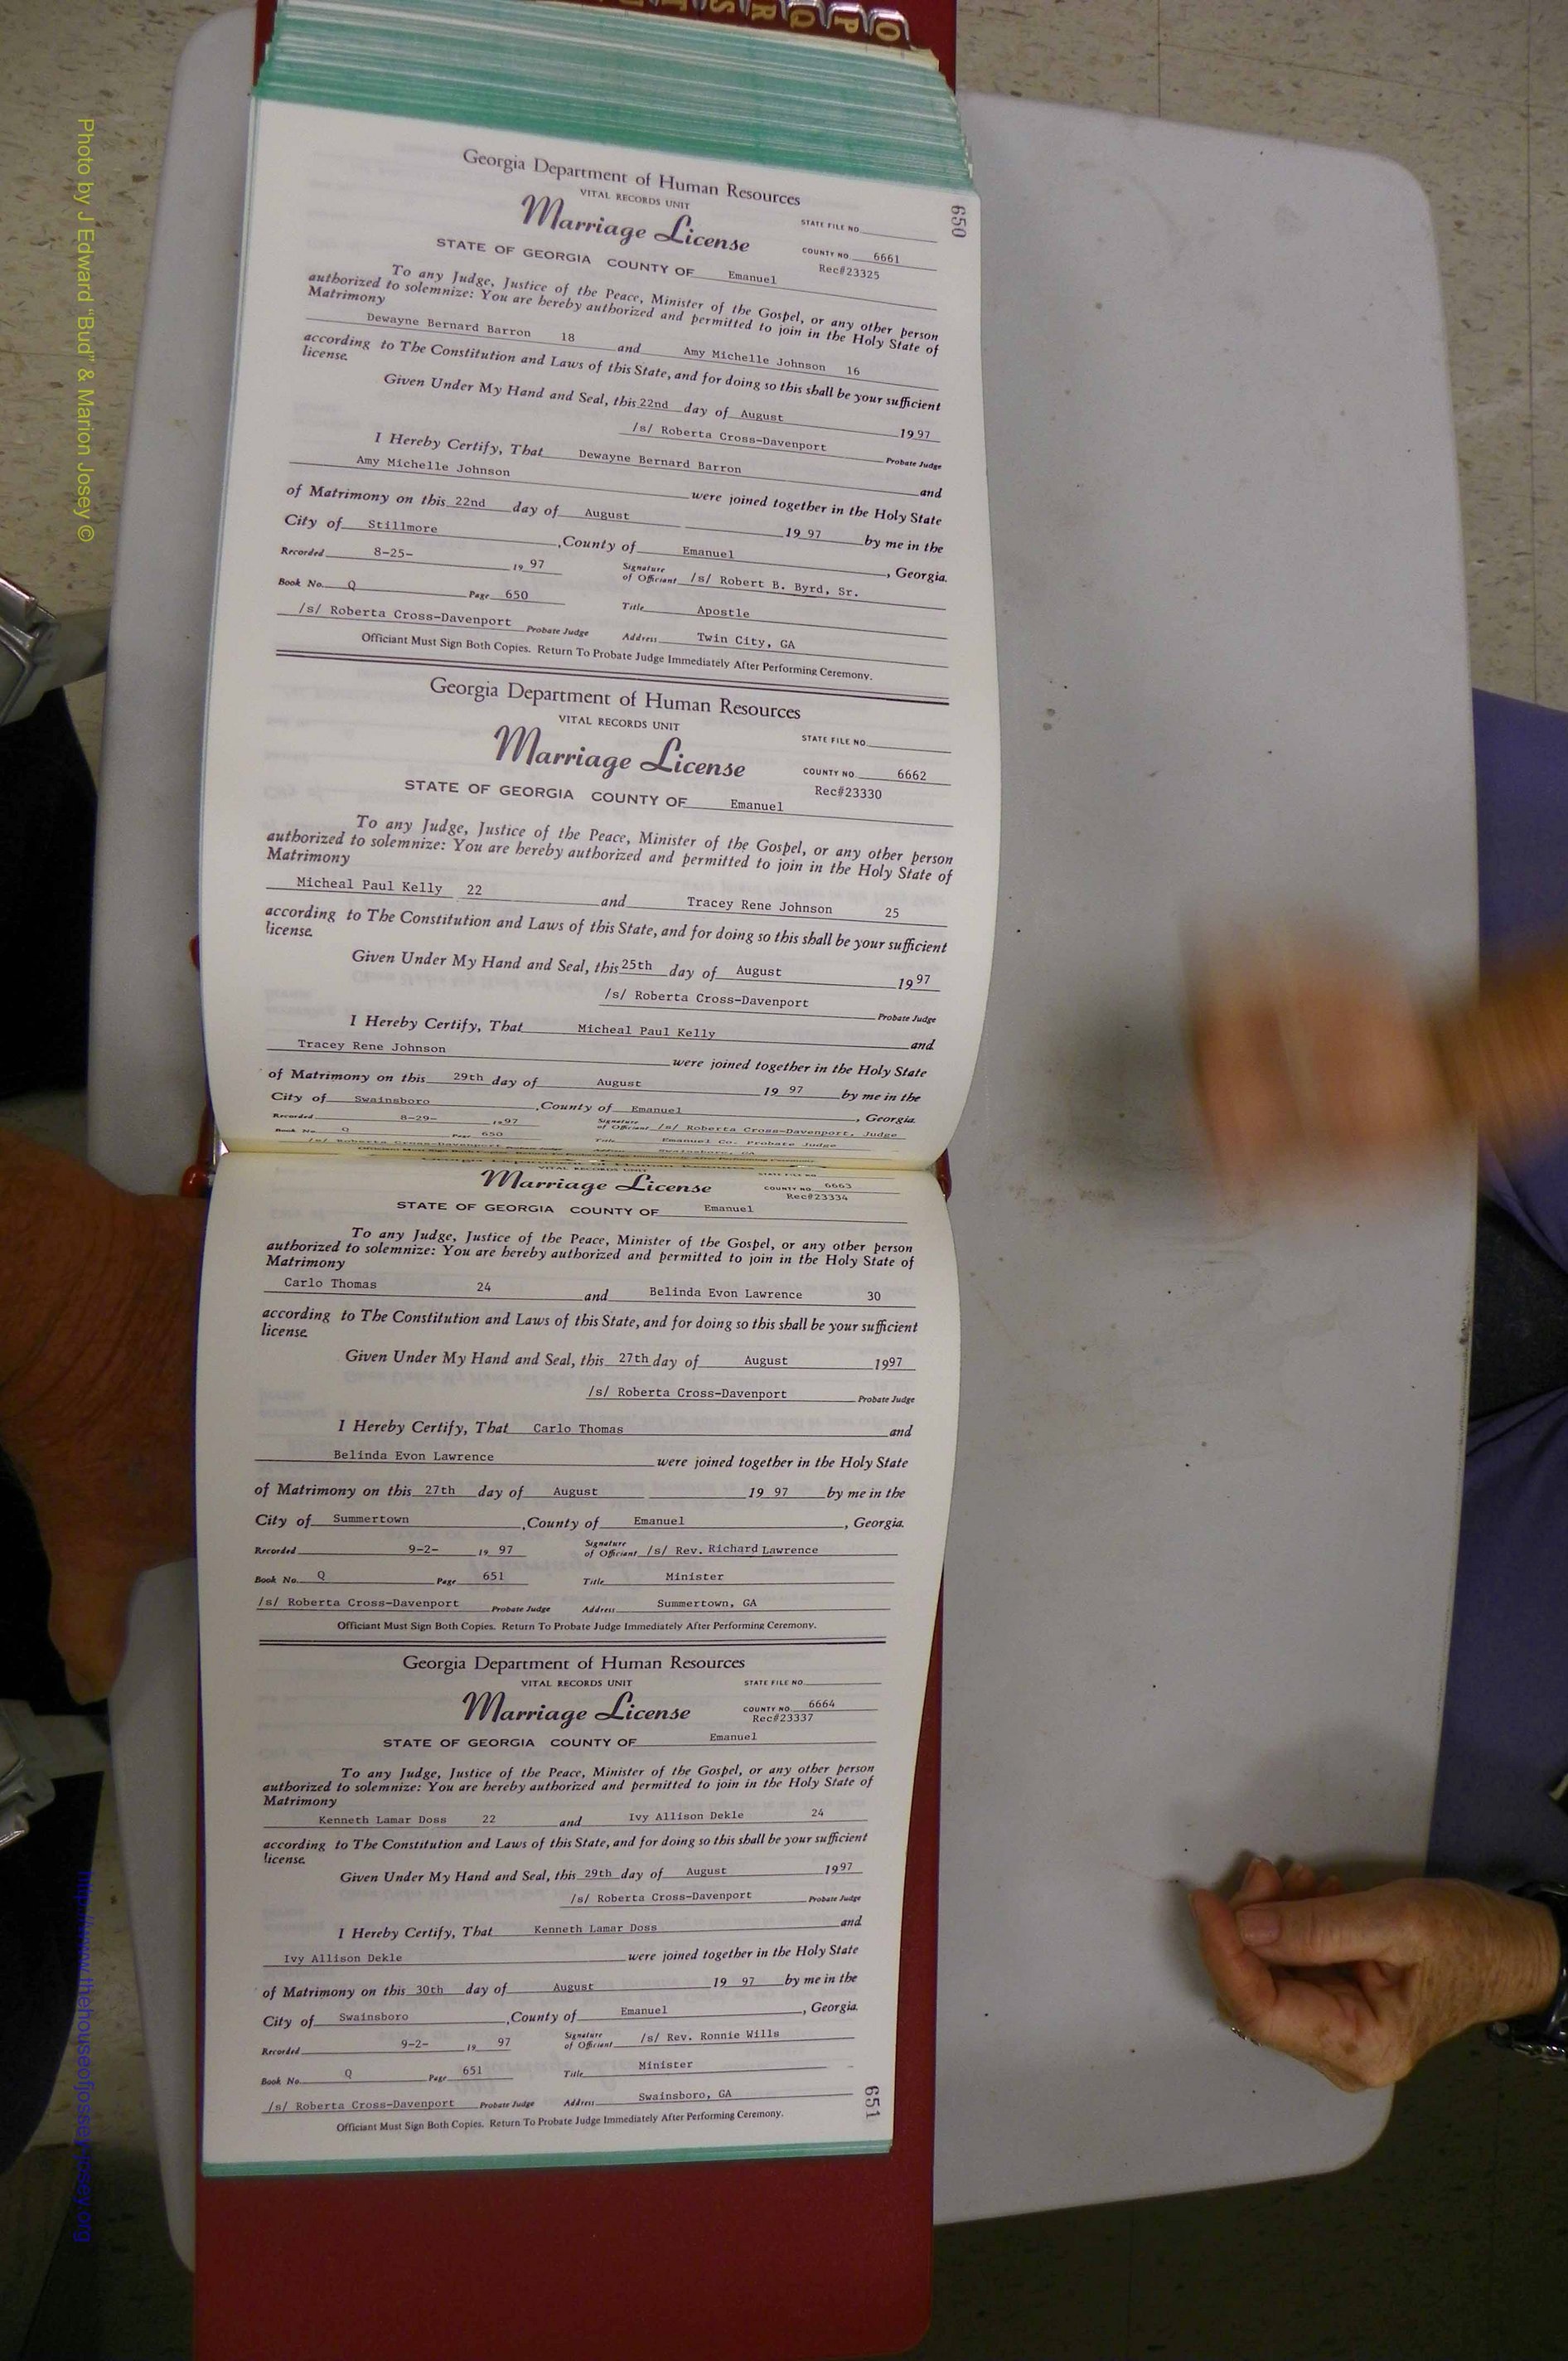 O
P
Q
R
S
T
650
Georgia Department of Human Resources
VITAL RECORDS UNIT
STATE FILE NO.
Marriage License
COUNTY NO. 6661
Rec#23325
STATE OF GEORGIA COUNTY OF Emanuel
To any Judge, Justice of the Peace, Minister of the Gospel, or any other person
authorized to solemnize: You are hereby authorized and permitted to join in the Holy State of
Matrimony
Dewayne Bernard Barron 18 and Amy Michelle Johnson 16
according to The Constitution and Laws of this State, and for doing so this shall be your sufficient
license.
Given Under My Hand and Seal, this 22nd day of August 1997
/s/ Roberta Cross-Davenport Probate Judge
I Hereby Certify, That Dewayne Bernard Barron and
Amy Michelle Johnson were joined together in the Holy State
of Matrimony on this 22nd day of August 19 97 by me in the
City of Stillmore, County of Emanuel, Georgia.
Recorded 8-25- 19 97 Signature of Officiant /s/ Robert B. Byrd, Sr.
Book No. Q Page 650 Title Apostle
/s/ Roberta Cross-Davenport Probate Judge Address Twin City, GA
Officiant Must Sign Both Copies. Return To Probate Judge Immediately After Performing Ceremony.
Georgia Department of Human Resources
VITAL RECORDS UNIT
STATE FILE NO.
Marriage License
COUNTY NO. 6662
Rec#23330
STATE OF GEORGIA COUNTY OF Emanuel
To any Judge, Justice of the Peace, Minister of the Gospel, or any other person
authorized to solemnize: You are hereby authorized and permitted to join in the Holy State of
Matrimony
Micheal Paul Kelly 22 and Tracey Rene Johnson 25
according to The Constitution and Laws of this State, and for doing so this shall be your sufficient
license.
Given Under My Hand and Seal, this 25th day of August 1997
/s/ Roberta Cross-Davenport
Probate Judge
I Hereby Certify, That Micheal Paul Kelly and
Tracey Rene Johnson were joined together in the Holy State
of Matrimony on this 29th day of August 19 97 by me in the
City of Swainsboro, County of Emanuel, Georgia.
Recorded 8-29- 1997 Signature of Officiant /s/ Roberta Cross-Davenport, Judge
Book No. Q Page 650 Title Emanuel Co. Probate Judge
/s/ Roberta Cross-Davenport Probate Judge Address Swainsboro, GA
Officiant Must Sign Both Copies. Return To Probate Judge Immediately After Performing Ceremony.
Georgia Department of Human Resources
VITAL RECORDS UNIT
STATE FILE NO.
Marriage License
COUNTY NO. 6663
Rec#23334
STATE OF GEORGIA COUNTY OF Emanuel
To any Judge, Justice of the Peace, Minister of the Gospel, or any other person
authorized to solemnize: You are hereby authorized and permitted to join in the Holy State of
Matrimony
Carlo Thomas 24 and Belinda Evon Lawrence 30
according to The Constitution and Laws of this State, and for doing so this shall be your sufficient
license.
Given Under My Hand and Seal, this 27th day of August 1997
/s/ Roberta Cross-Davenport Probate Judge
I Hereby Certify, That Carlo Thomas and
Belinda Evon Lawrence were joined together in the Holy State
of Matrimony on this 27th day of August 19 97 by me in the
City of Summertown, County of Emanuel, Georgia.
Recorded 9-2- 19 97 Signature of Officiant /s/ Rev. Richard Lawrence
Book No. Q Page 651 Title Minister
/s/ Roberta Cross-Davenport Probate Judge Address Summertown, GA
Officiant Must Sign Both Copies. Return To Probate Judge Immediately After Performing Ceremony.
Georgia Department of Human Resources
VITAL RECORDS UNIT
STATE FILE NO.
Marriage License
COUNTY NO. 6664
Rec#23337
STATE OF GEORGIA COUNTY OF Emanuel
To any Judge, Justice of the Peace, Minister of the Gospel, or any other person
authorized to solemnize: You are hereby authorized and permitted to join in the Holy State of
Matrimony
Kenneth Lamar Doss 22 and Ivy Allison Dekle 24
according to The Constitution and Laws of this State, and for doing so this shall be your sufficient
license.
Given Under My Hand and Seal, this 29th day of August 1997
/s/ Roberta Cross-Davenport Probate Judge
I Hereby Certify, That Kenneth Lamar Doss and
Ivy Allison Dekle were joined together in the Holy State
of Matrimony on this 30th day of August 19 97 by me in the
City of Swainsboro, County of Emanuel, Georgia.
Recorded 9-2- 19 97 Signature of Officiant /s/ Rev. Ronnie Wills
Book No. Q Page 651 Title Minister
/s/ Roberta Cross-Davenport Probate Judge Address Swainsboro, GA
Officiant Must Sign Both Copies. Return To Probate Judge Immediately After Performing Ceremony.
651
Photo by J Edward "Bud" & Marion Josey ©
http://www.thehouseofjossey-josey.org